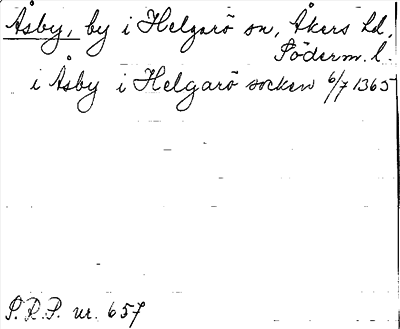 Åsby, by i Helgarö sn, Åkers hd,
Söderm. l.
i Åsby i Helgarö socken 6/7 1365
S.R.P. nr. 657